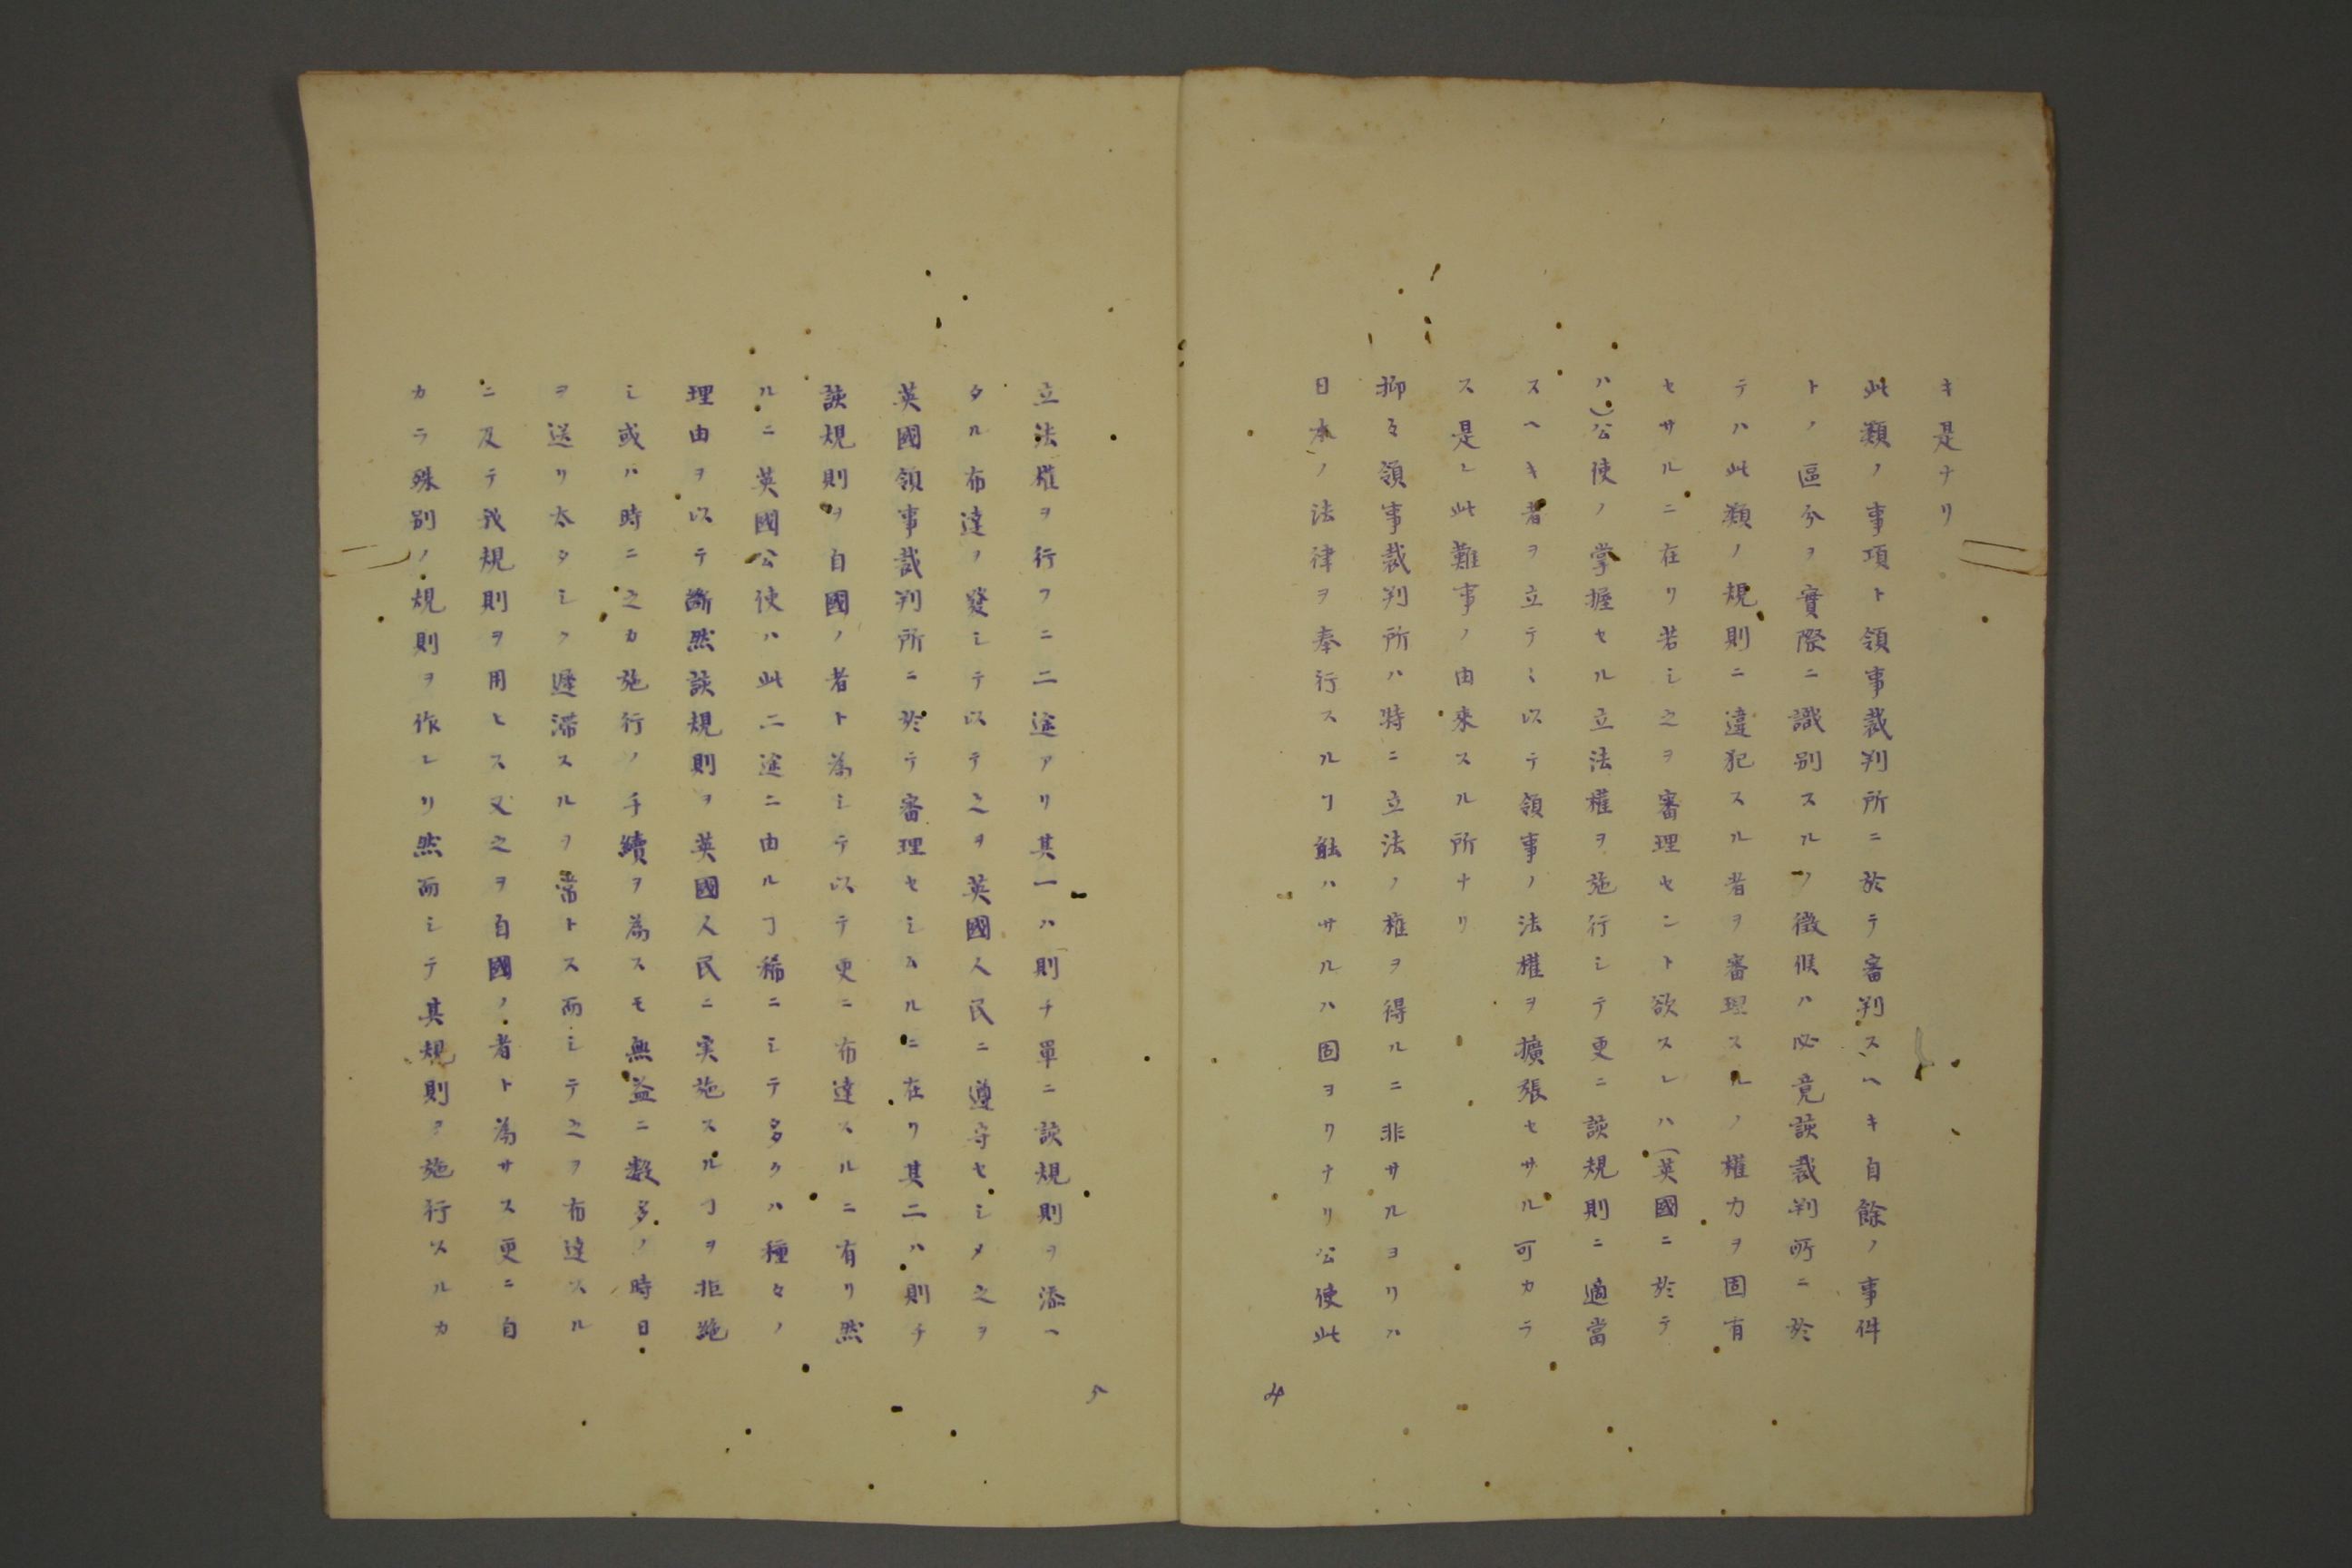 キ是ナリ
此類ノ事項ト領事裁判所ニ於テ審判スヘキ自餘ノ事件
トノ區分ヲ實際ニ識別スルノ徴候ハ必竟該裁判所ニ於
テハ此類ノ規則ニ違犯スル者ヲ審理スルノ權力ヲ固有
セサルニ在リ若シ之ヲ審理セント欲スレハ(英國ニ於テ
ハ)公使ノ掌握セル立法權ヲ施行シテ更ニ該規則ニ適當
スヘキ者ヲ立テヽ以テ領事ノ法權ヲ擴張セサル可カラ
ス是レ此難事ノ由来スル所ナリ
抑々領事裁判所ハ特ニ立法ノ權ヲ得ルニ非サルヨリハ
日本ノ法律ヲ奉行スルヿ能ハサルハ固ヨリナリ公使此
4
立法權ヲ行フニ二途アリ其一ハ則チ單ニ該規則ヲ添ヘ
タル布達ノ發シテ以テ之ヲ英國人民ニ遵守セシメ之ヲ
英國領事裁判所ニ於テ審理セシムルニ在リ其二ハ則チ
該規則ヲ自國ノ者ト為シテ以テ更ニ布達スルニ有リ然
ルニ英國公使ハ此二途ニ由ルヿ稀ニシテ多クハ種々ノ
理由ヲ以テ斷然該規則ヲ英國人民ニ実施スルヿヲ拒絶
シ或ハ時ニ之カ施行ノ手續ヲ為スモ無益ニ數多ノ時日
ヲ送リ太タシク遲滞スルヲ常トス而シテ之ヲ布達スル
ニ及テ我規則ヲ用ヒス又之ヲ自國ノ者ト為サス更ニ自
カラ殊別ノ規則ヲ作レリ然而シテ其規則ヲ施行スルカ
5